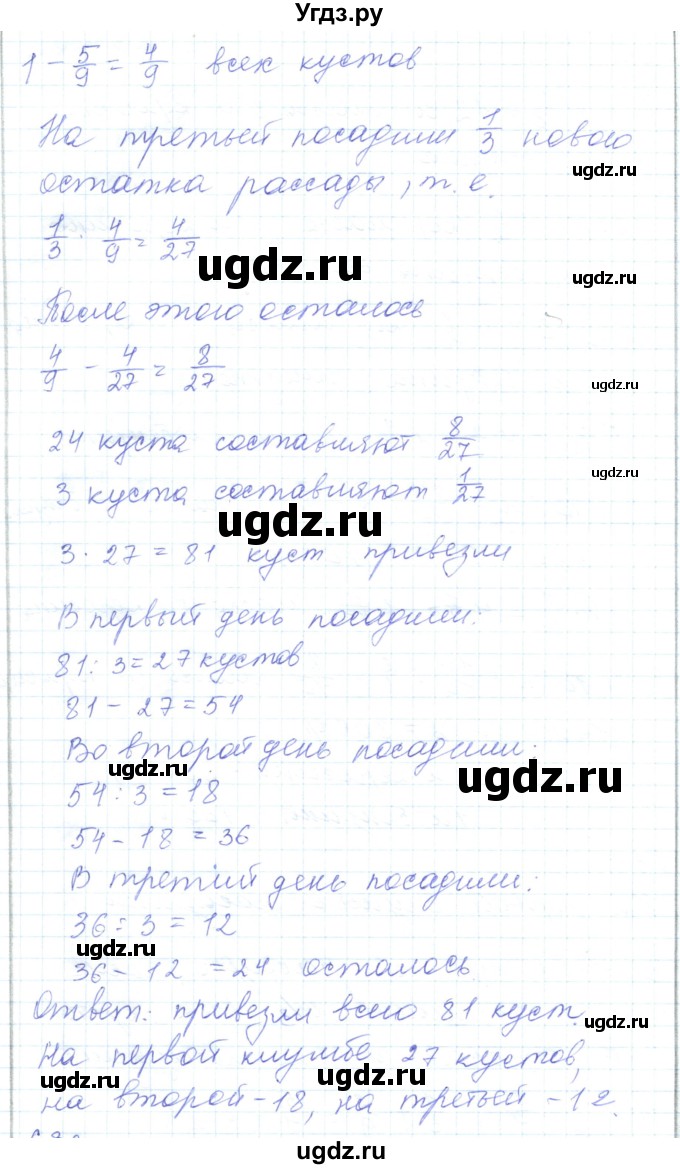 Угдз.ру
1 - 5/9 = 4/9 всех кустов
На третьей посадили 1/3 нового
ugdz.ru
остатка рассады, т. е.
ugdz.ru
1/3 · 4/9 = 4/27
ugdz.ru
ugdz.ru
После этого осталось
4/9 - 4/27 = 8/27
ugdz.ru
24 куста составляют 8/27
ugdz.ru
3 куста составляют 1/27
ugdz.ru
3 · 27 = 81 куст привезли
В первый день посадили:
81 : 3 = 27 кустов
81 - 27 = 54
Во второй день посадили:
ugdz.ru
ugdz.ru
54 : 3 = 18
54 - 18 = 36
В третий день посадили:
36 : 3 = 12
ugdz.ru
36 - 12 = 24 осталось
Ответ: привезли всего 81 куст.
ugdz.ru
На первой клумбе 27 кустов,
ugdz.ru
на второй - 18, на третьей - 12.
ugdz.ru